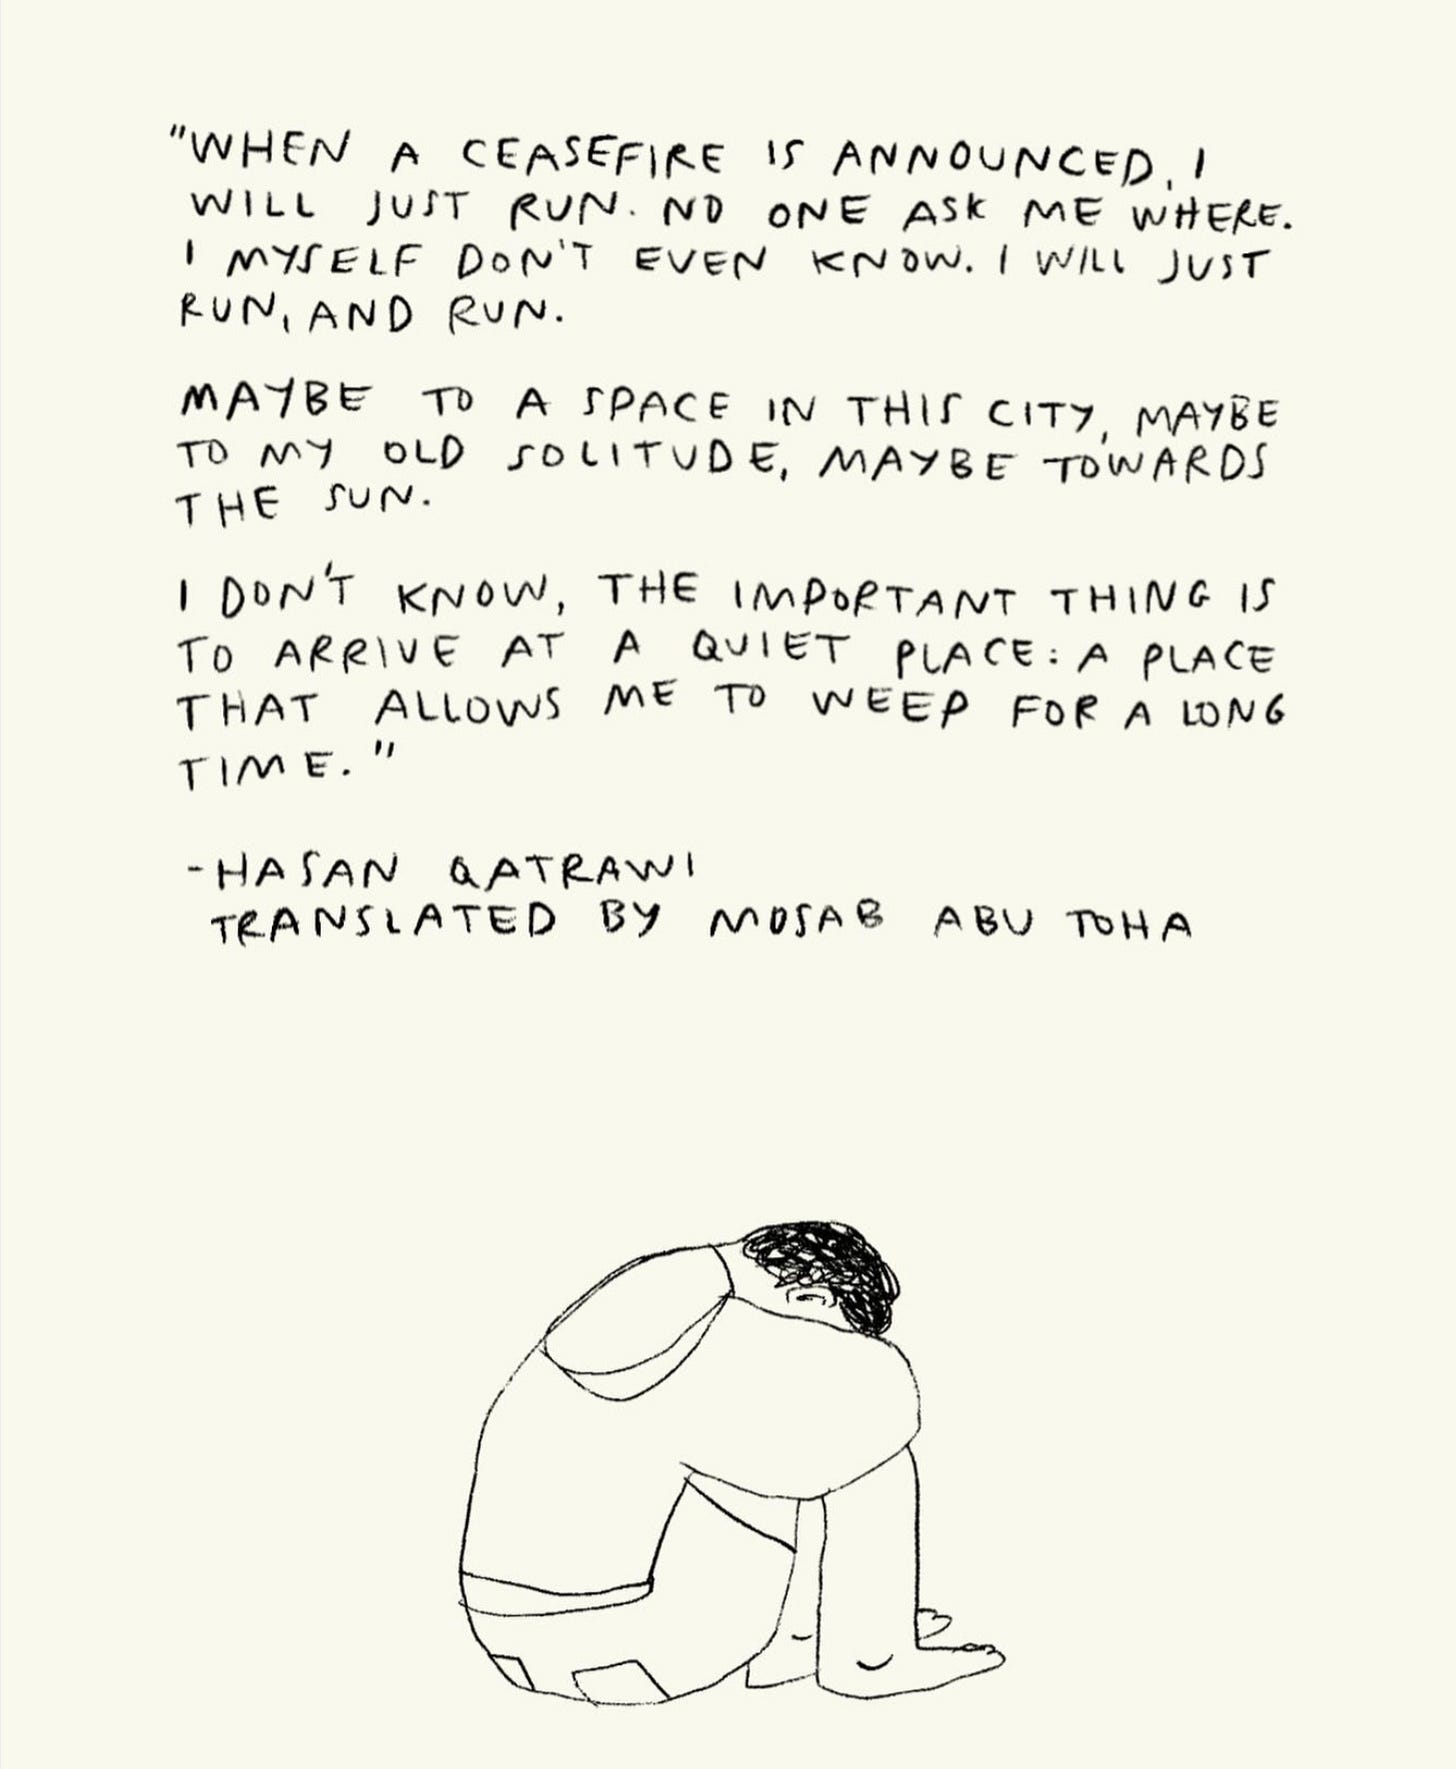 "WHEN A CEASEFIRE IS ANNOUNCED, I
WILL JUST RUN. NO ONE ASK ME WHERE.
I MYSELF DON'T EVEN KNOW. I WILL JUST
RUN, AND RUN.
MAYBE TO A SPACE IN THIS CITY, MAYBE
TO MY OLD SOLITUDE, MAYBE TOWARDS
THE SUN.
I DON'T KNOW, THE IMPORTANT THING IS
TO ARRIVE AT A QUIET PLACE: A PLACE
THAT ALLOWS ME TO WEEP FOR A LONG
TIME."
-HASAN QATRAWI
TRANSLATED BY MOSAB ABU TOHA